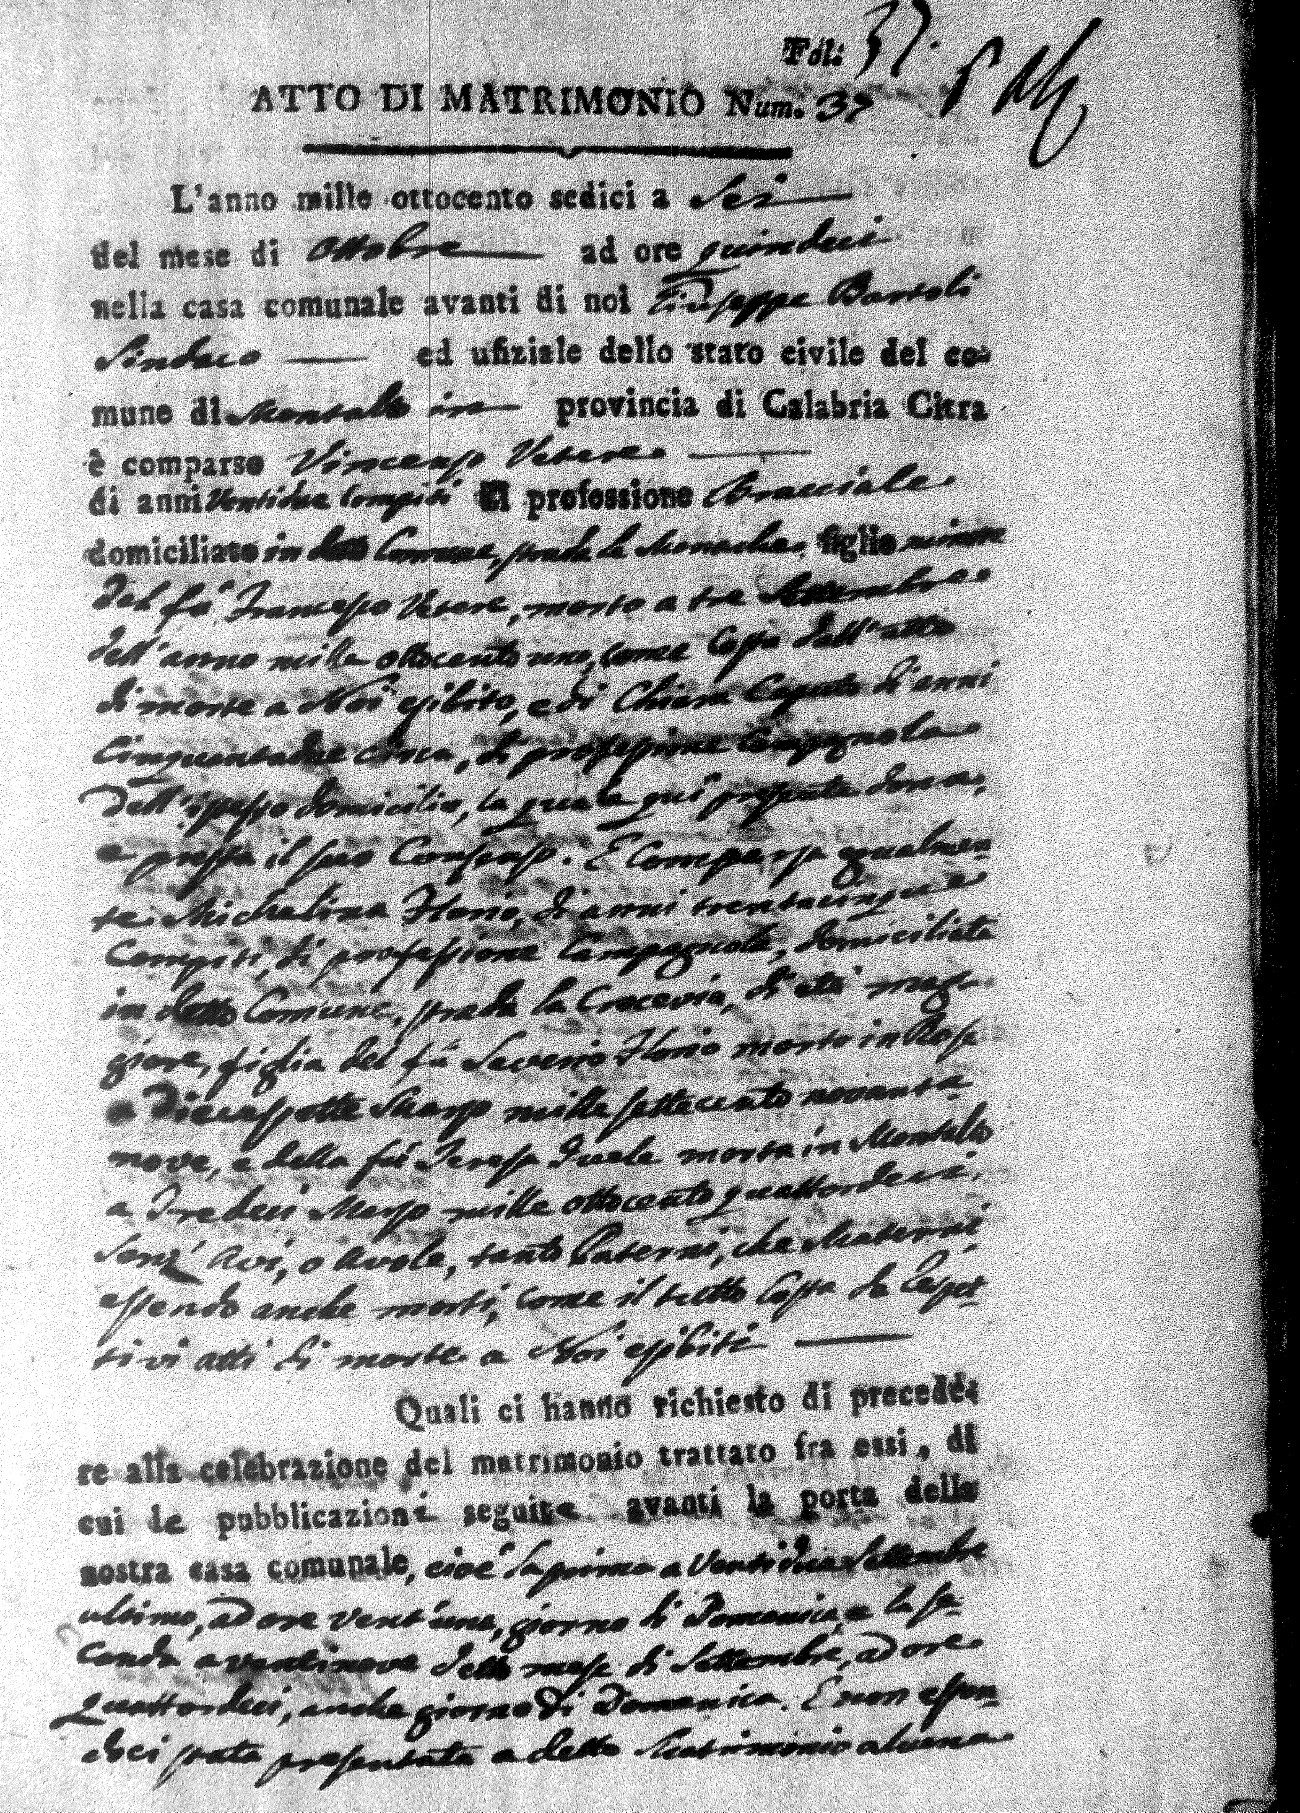 Fol: 37.
ATTO DI MATRIMONIO Num. 37
L'anno mille ottocento sedici a Sei
del mese di Ottobre ad ore quindeci
nella casa comunale avanti di noi Giuseppe Bartoli
Sindaco ed ufiziale dello stato civile del co-
mune di Montalto in provincia di Calabria Citra
è comparso Vincenzo Vetere
di anni ventidue compiti di professione Bracciale
domiciliato in detto Comune, strada le Monache, figlio minore
del fù Francesco Vetere, morto a tre Settembre
dell'anno mille ottocento uno, come costa dall'atto
di morte a Noi esibito, e di Chiara Caputo di anni
cinquantadue circa, di professione Campagnola
dell'istesso domicilio, la quale qui presente dona,
e presta il suo Consenso. E comparsa egualmen-
te Michelina Florio, di anni trentacinque
compiti, di professione Campagnola, domiciliata
in detto Comune, strada la Crocevia, di età mag-
giore, figlia del fù Saverio Florio morto in Rose
a Diecessette Marzo mille settecento novanta-
nove, e della fù Teresa morta in Montalto
a Tredeci Marzo mille ottocento quattordeci,
senz' Avi, o Avole, tanto Paterni, che Materni
essendo anche morti, come il tutto costa da respet-
tivi atti di morte a Noi esibiti
Quali ci hanno richiesto di precede-
re alla celebrazione del matrimonio trattato fra essi, di
cui le pubblicazioni seguite avanti la porta della
nostra casa comunale, cioè la prima a ventidue Settembre
ultimo, ad ore vent'una, giorno di Domenica, e la se-
conda a ventinove detto mese di Settembre, ad ore
quattordeci, anche giorno di Domenica. E non essen-
doci stata presentata a detto Matrimonio alcuna